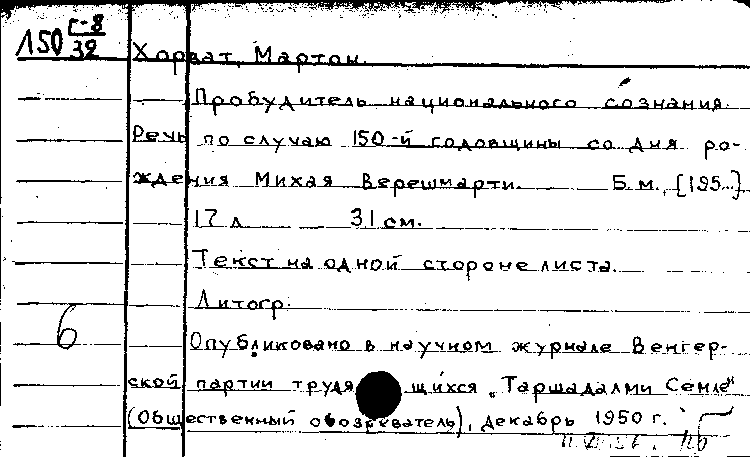 150 г-8/32
Хорват, Мартон.
Пробудитель национального сознания.
Речь по случаю 150-й годовщины со дня ро-
ждения Михая Верешмарти. Б.м., [195..]
17 л 31 см.
Текст на одной стороне листа.
Литогр.
6
Опубликовано в научном журнале Венгер-
ской партии трудящихся „Таршадалми Семле"
(Общественный обозреватель), декабрь 1950 г.